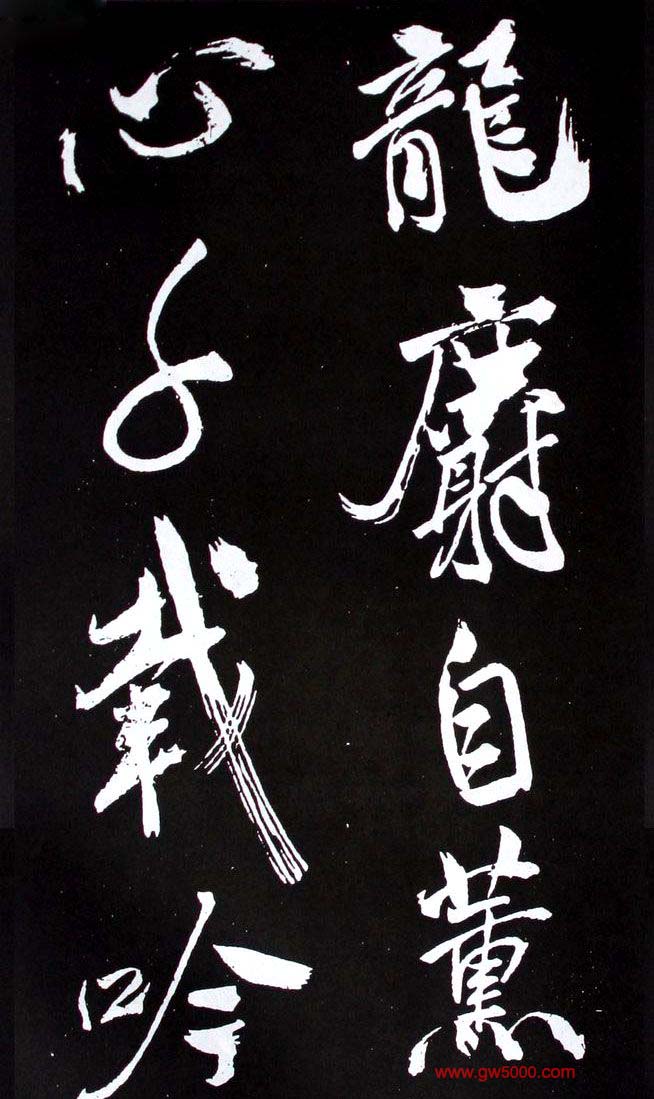 龍麝自薰
心千載吟
www.gw5000.com